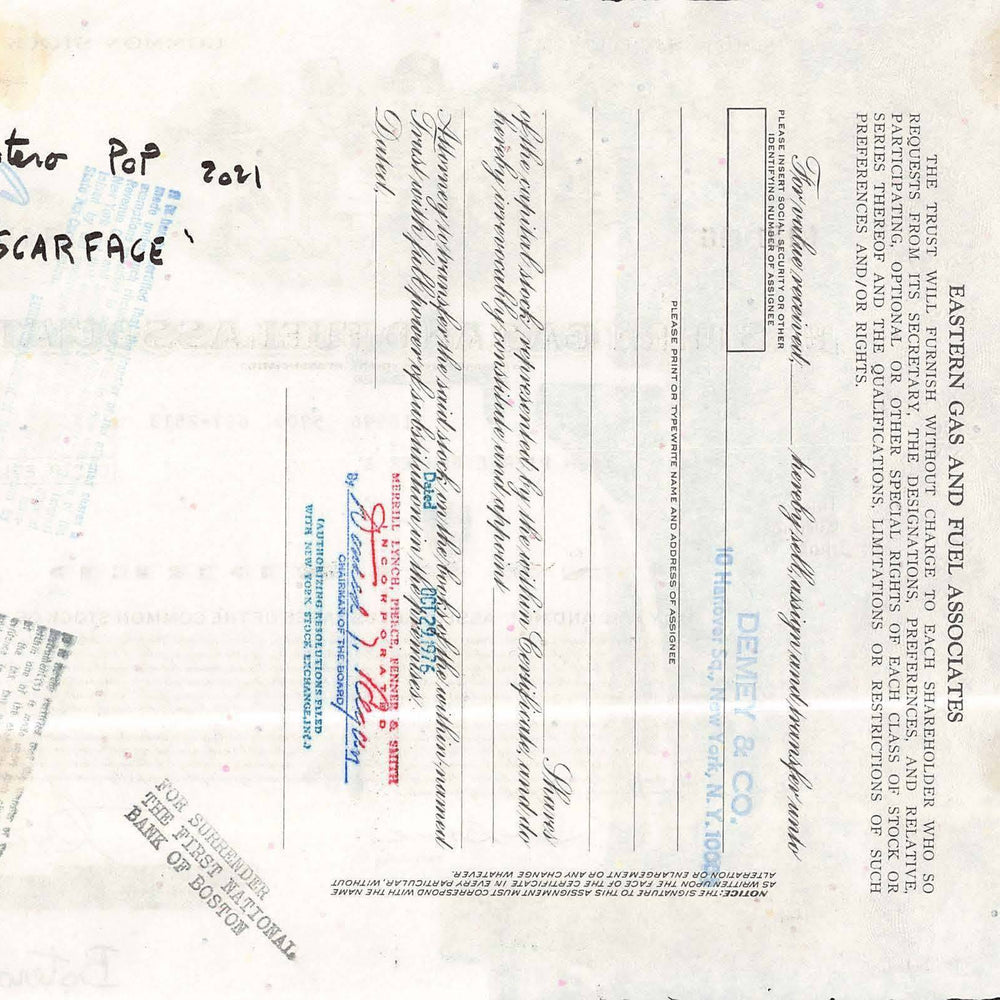 EASTERN GAS AND FUEL ASSOCIATES
THE TRUST WILL FURNISH WITHOUT CHARGE TO EACH SHAREHOLDER WHO SO
REQUESTS FROM ITS SECRETARY, THE DESIGNATIONS, PREFERENCES, AND RELATIVE,
PARTICIPATING, OPTIONAL OR OTHER SPECIAL RIGHTS OF EACH CLASS OF STOCK OR
SERIES THEREOF AND THE QUALIFICATIONS, LIMITATIONS OR RESTRICTIONS OF SUCH
PREFERENCES AND/OR RIGHTS.
For value received, hereby sell, assign and transfer unto
PLEASE INSERT SOCIAL SECURITY OR OTHER
IDENTIFYING NUMBER OF ASSIGNEE
DEMEY & CO.
10 Hanover Sq., New York, N. Y.
PLEASE PRINT OR TYPEWRITE NAME AND ADDRESS OF ASSIGNEE
Shares
of the capital stock represented by the within Certificate, and do
hereby irrevocably constitute and appoint
Attorney to transfer the said stock on the books of the within-named
Trust with full power of substitution in the premises.
Dated,
Dated OCT 29 1976
MERRILL LYNCH, PIERCE, FENNER & SMITH
INCORPORATED
By Donald T. Regan
CHAIRMAN OF THE BOARD
(AUTHORIZING RESOLUTIONS FILED
WITH NEW YORK STOCK EXCHANGE, INC.)
NOTICE: THE SIGNATURE TO THIS ASSIGNMENT MUST CORRESPOND WITH THE NAME
AS WRITTEN UPON THE FACE OF THE CERTIFICATE IN EVERY PARTICULAR, WITHOUT
ALTERATION OR ENLARGEMENT OR ANY CHANGE WHATEVER.
FOR SURRENDER
THE FIRST NATIONAL
BANK OF BOSTON
POP 2021
SCARFACE'